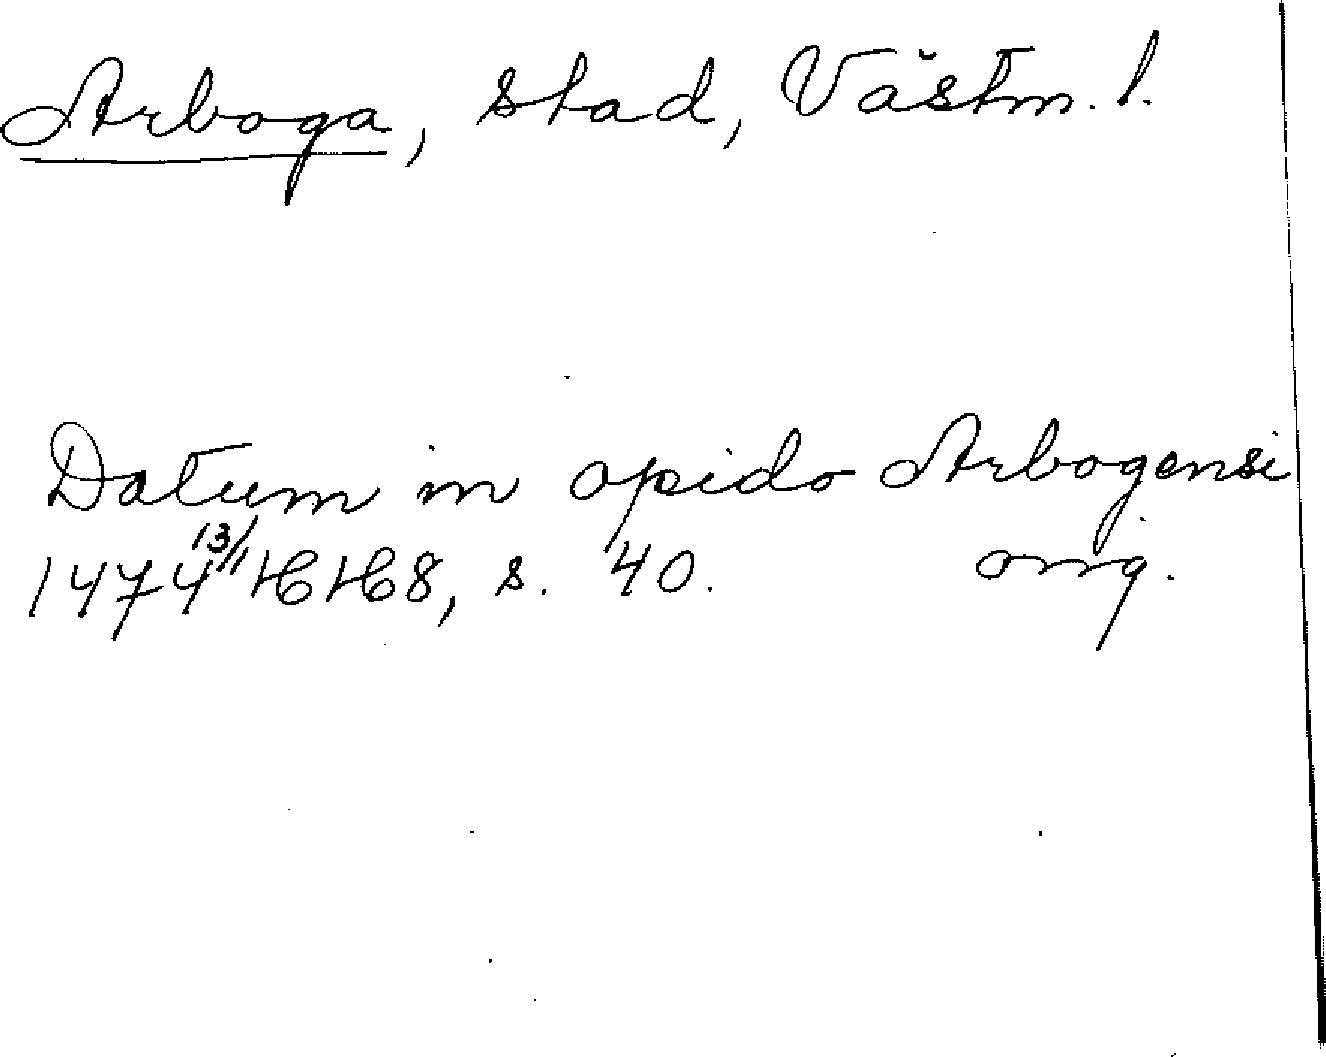 Arboga, stad, Västm. l.
Datum in opido Arbogensi
1474 13/11 HH8, s. 40. orig.